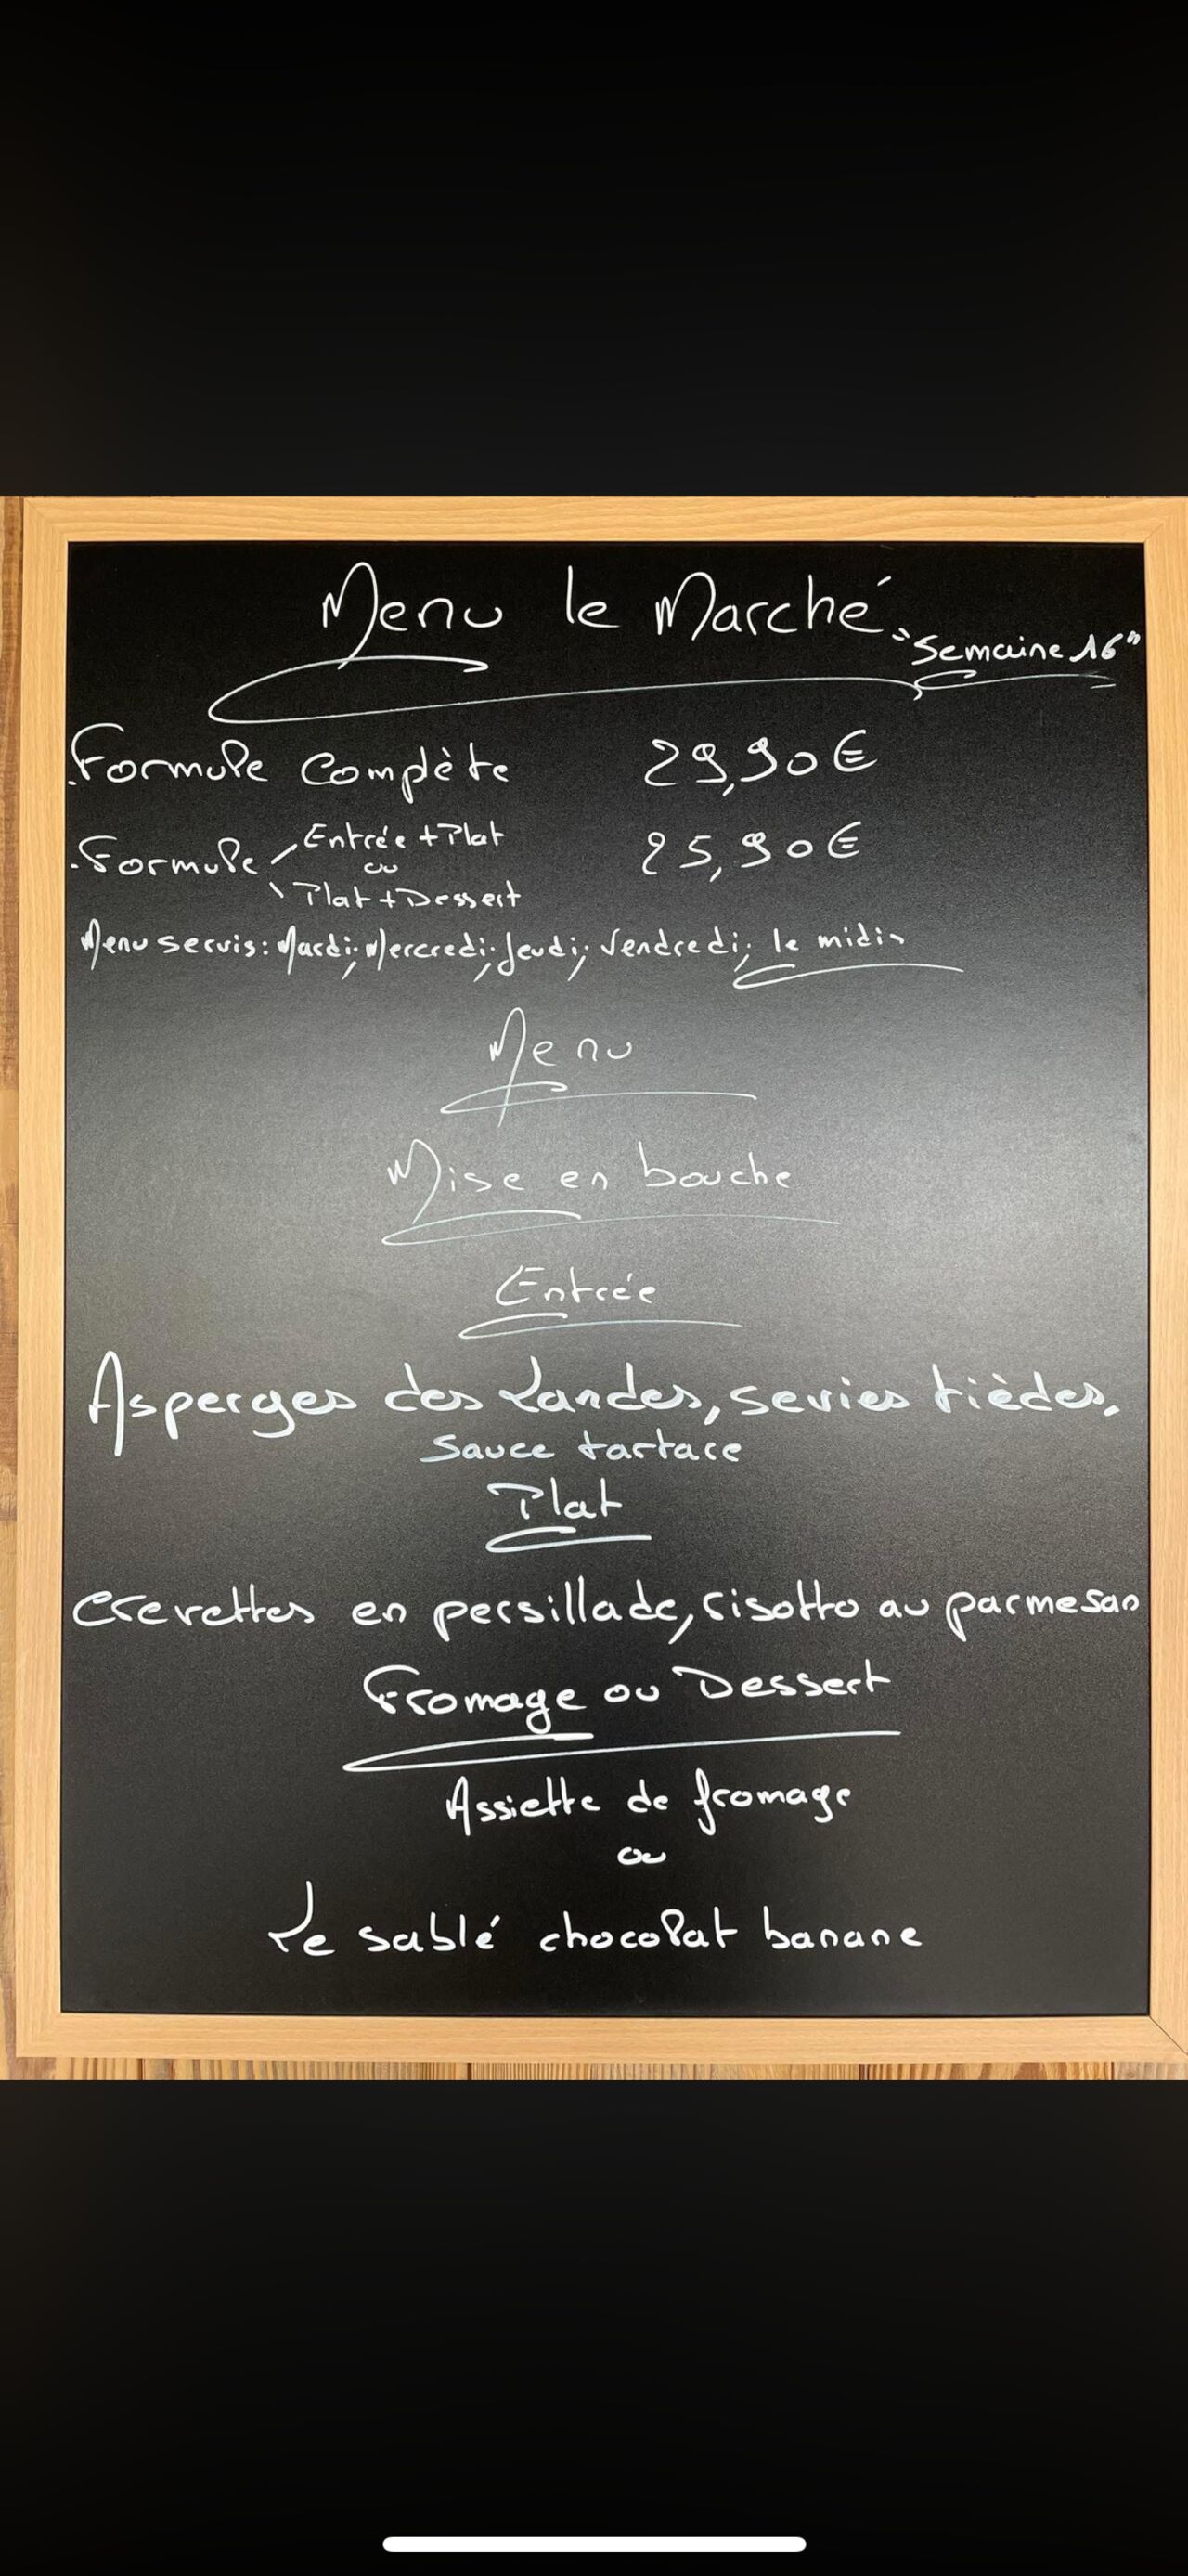 Menu le Marché
"Semaine 16"
.Formule Complète 29,90€
.Formule Entrée + Plat 25,90€
ou
Plat + Dessert
Menu servis: Mardi; Mercredi; Jeudi; Vendredi; le midi
Menu
Mise en bouche
Entrée
Asperges des Landes, servies tièdes,
sauce tartare
Plat
Crevettes en persillade, risotto au parmesan
Fromage ou Dessert
Assiette de fromage
ou
Le sablé chocolat banane